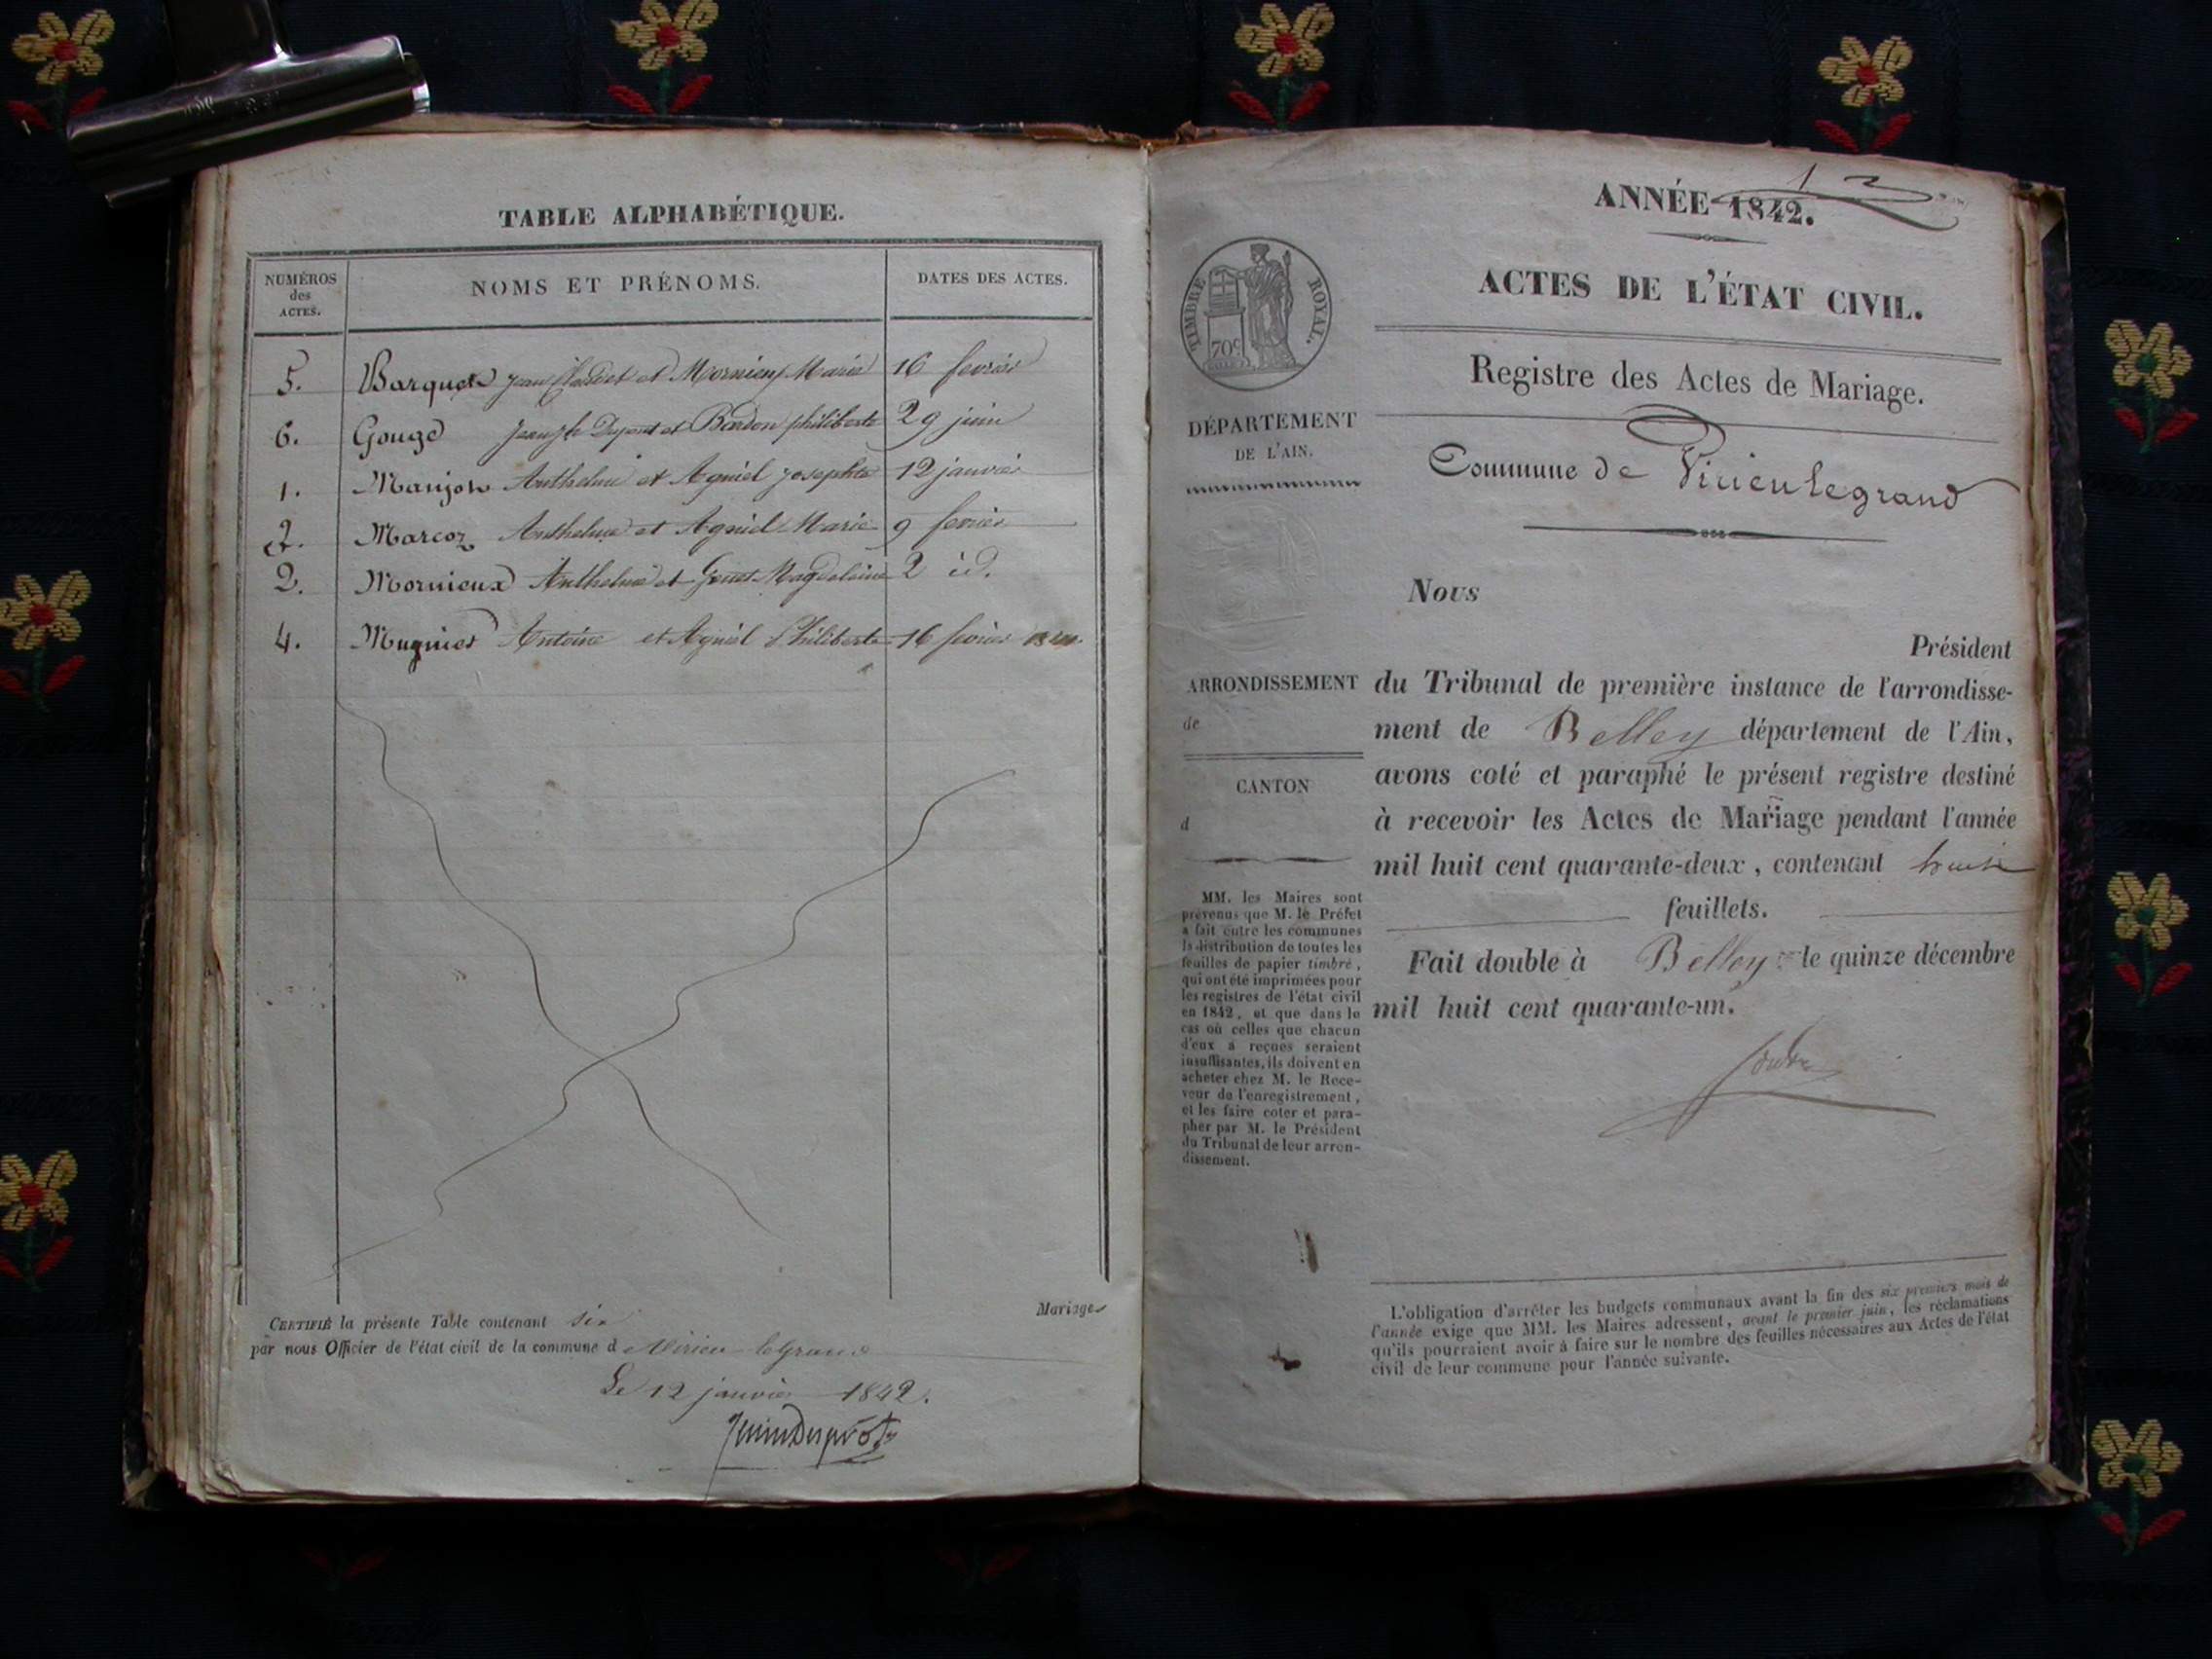 TABLE ALPHABÉTIQUE.
NUMÉROS
des
ACTES.
NOMS ET PRÉNOMS.
DATES DES ACTES.
5. Barquet Jean et Mornieux Marie 16 fevrier
6. Gouze Joseph Dupont et Bardon philiberte 29 juin
1. Manjon Anthelme et Agniel josephte 12 janvier
Marcoz Anthelme et Agniel Marie 9 fevrier
2. Mornieux Anthelme et Magdelaine 2 id.
4. Mugnier Antoine et Agniel Philiberte 16 fevrier
CERTIFIÉ la présente Table contenant six Mariages
par nous Officier de l'état civil de la commune d Virieu legrand
Le 12 janvier 1842.
ANNÉE 1842.
ACTES DE L'ÉTAT CIVIL.
Registre des Actes de Mariage.
Commune de Virieu legrand
TIMBRE ROYAL.
70c
DÉPARTEMENT
DE L'AIN.
ARRONDISSEMENT
de
CANTON
d
MM. les Maires sont
prévenus que M. le Préfet
a fait entre les communes
la distribution de toutes les
feuilles de papier timbré,
qui ont été imprimées pour
les registres de l'état civil
en 1842, et que dans le
cas où celles que chacun
d'eux a reçues seraient
insuffisantes, ils doivent en
acheter chez M. le Rece-
veur de l'enregistrement,
et les faire coter et para-
pher par M. le Président
du Tribunal de leur arron-
dissement.
Nous
Président
du Tribunal de première instance de l'arrondisse-
ment de Belley département de l'Ain,
avons coté et paraphé le présent registre destiné
à recevoir les Actes de Mariage pendant l'année
mil huit cent quarante-deux, contenant huit
feuillets.
Fait double à Belley le quinze décembre
mil huit cent quarante-un.
L'obligation d'arrêter les budgets communaux avant la fin des six premiers mois de
l'année exige que MM. les Maires adressent, avant le premier juin, les réclamations
qu'ils pourraient avoir à faire sur le nombre des feuilles nécessaires aux Actes de l'état
civil de leur commune pour l'année suivante.